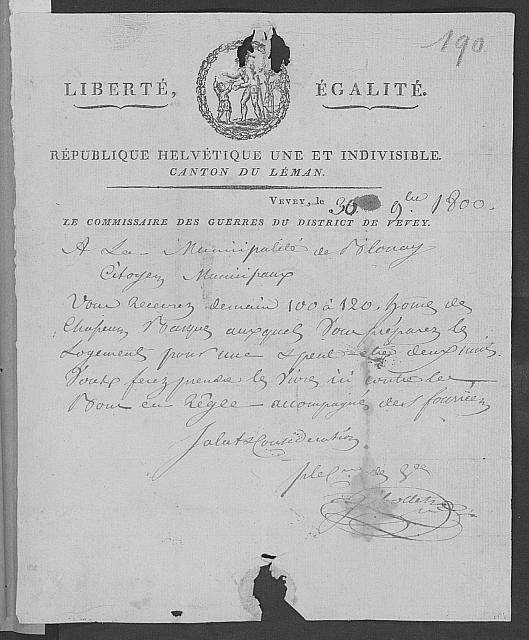 190
LIBERTÉ, ÉGALITÉ.
RÉPUBLIQUE HELVÉTIQUE UNE ET INDIVISIBLE.
CANTON DU LÉMAN.
VEVEY, le 30 9bre 1800.
LE COMMISSAIRE DES GUERRES DU DISTRICT DE VEVEY.
A La Municipalité de Blonay
Citoyens Municipaux
Vous recevrez demain 100 à 120. homes de
auxquels Vous préparez le
Logement pour une & peut être deux nuits.
Vous ferez prendre les Vivres ici contre les
Bons en règle accompagné des fouriers
Salut & Considération